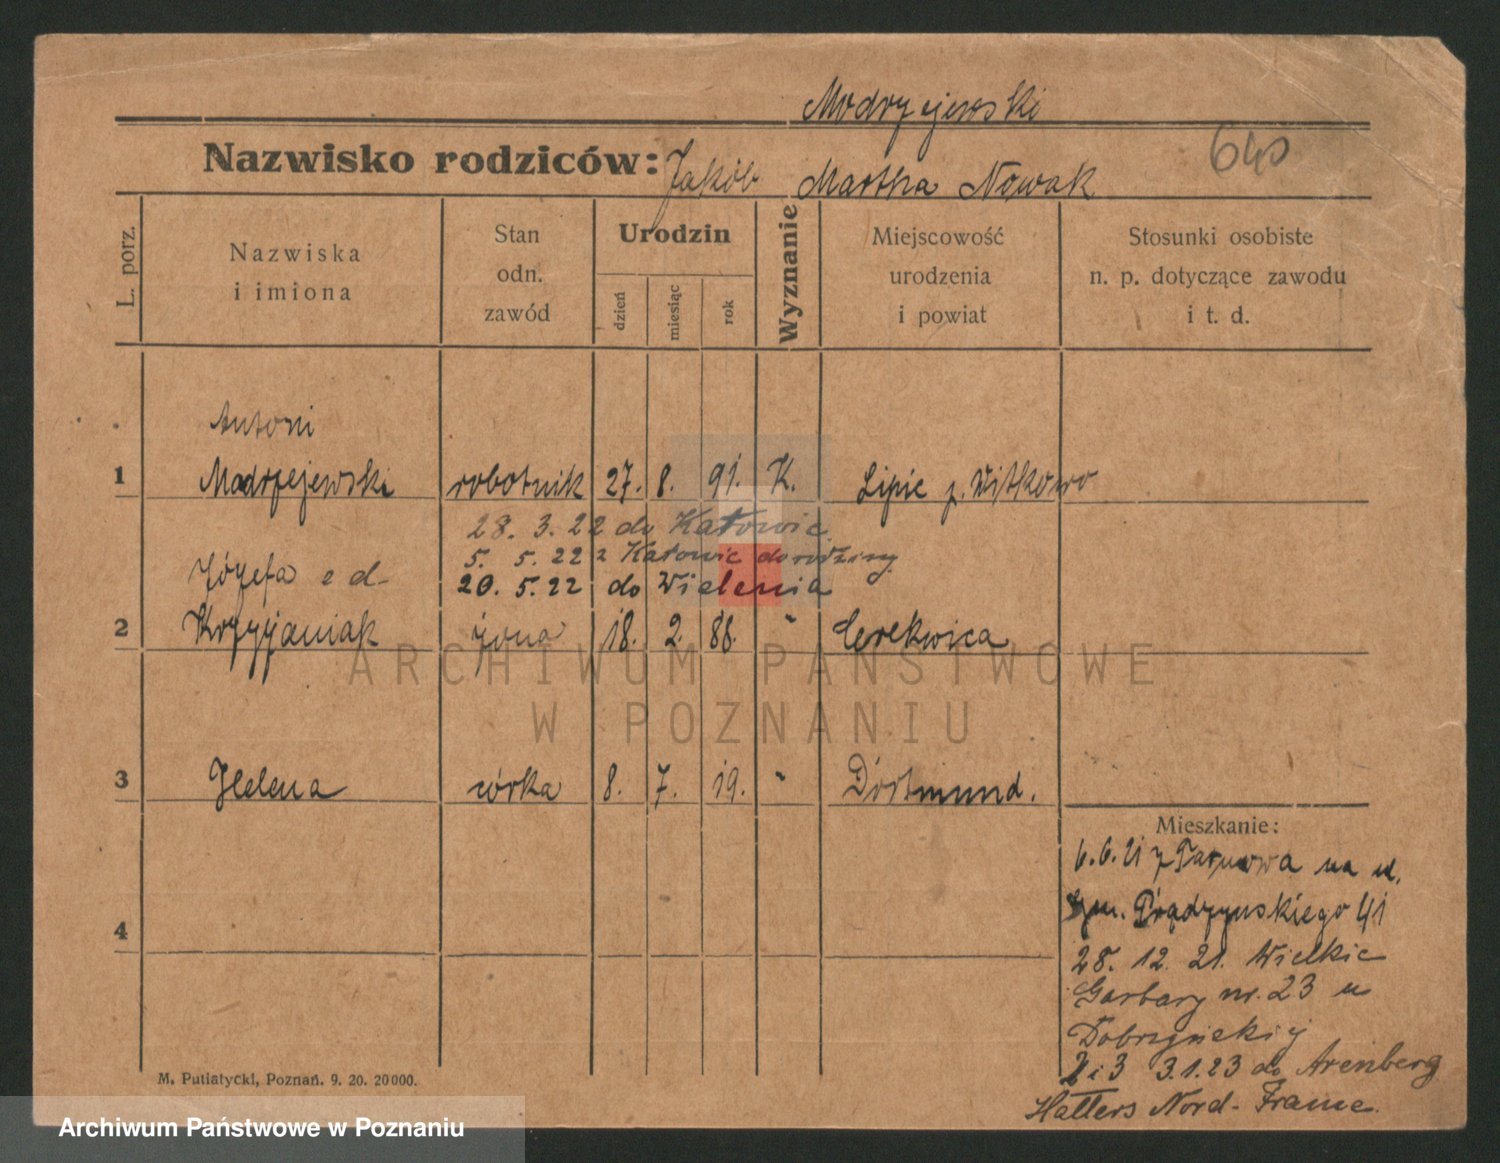 Modrzejewski
Nazwisko rodziców: Jakób Martha Nowak
640
L. porz.
Nazwiska
i imiona
Stan
odn.
zawód
Urodzin
dzień
miesiąc
rok
Wyznanie
Miejscowość
urodzenia
i powiat
Stosunki osobiste
n. p. dotyczące zawodu
i t. d.
Antoni
1 Modrzejewski robotnik 27. 8. 91. K. Lipie p. Witkowo
28. 3. 22 do Katowic
5. 5. 22 z Katowic do rodziny
20. 5. 22 do Wielenia
Józefa z d-
2 Krzyżaniak żona 18. 2. 88. " Cerekwica
3 Helena córka 8. 7. 19. " Dortmund.
4
Mieszkanie:
6.6.21 z Tarnowa na ul.
Prądzyńskiego 41
28. 12. 21. Wielkie
Garbary nr. 23 u
Dobrzyńskiej
2 i 3 3.1.23 do Arenberg
Hatters Nord-France.
M. Putiatycki, Poznań. 9. 20. 20000.
ARCHIWUM PAŃSTWOWE
W POZNANIU
Archiwum Państwowe w Poznaniu